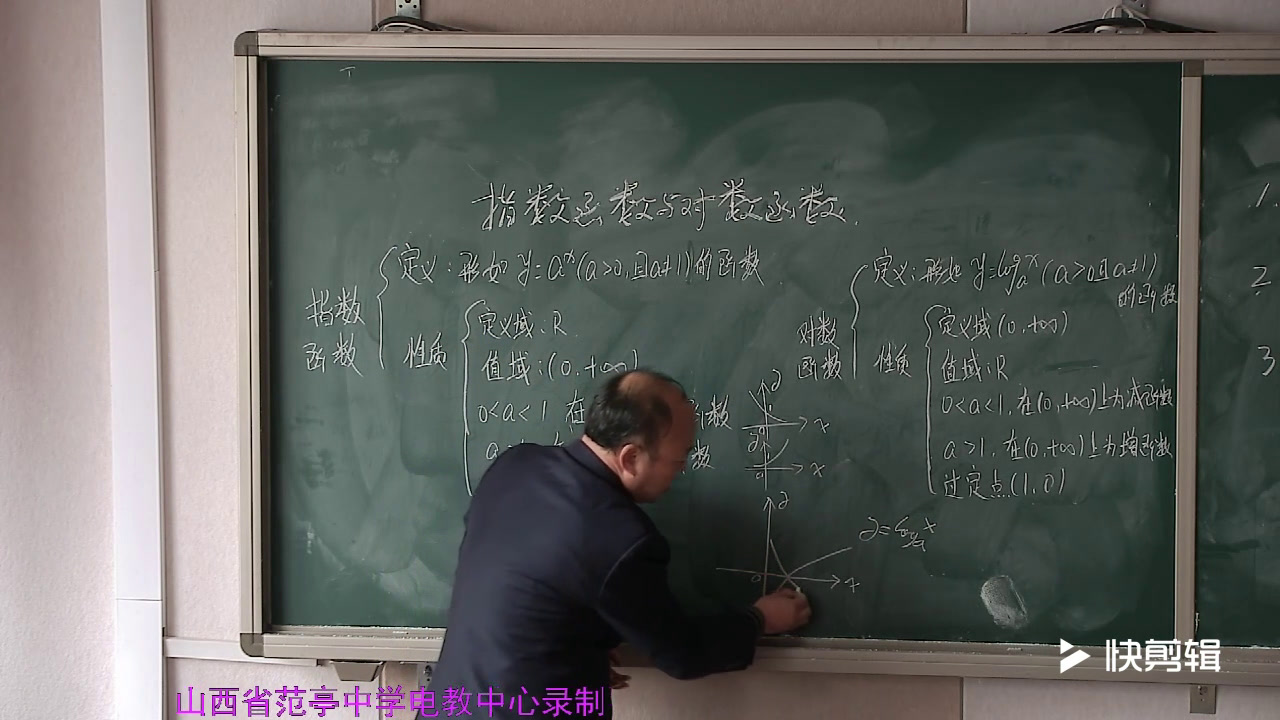 指数函数与对数函数.
指数
函数
定义:形如 y=a^x(a>0,且a≠1)的函数
性质
定义域:R
值域:(0,+∞)
0<a<1 在
函数
a>1
数
对数
函数
定义:形如 y=log_a^x(a>0且a≠1)
的函数
性质
定义域(0,+∞)
值域:R
0<a<1,在(0,+∞)上为减函数
a>1,在(0,+∞)上为增函数
过定点(1,0)
y
x
0
y
x
0
y
x
0
y=log_a^x
1.
2.
3
快剪辑
山西省范亭中学电教中心录制